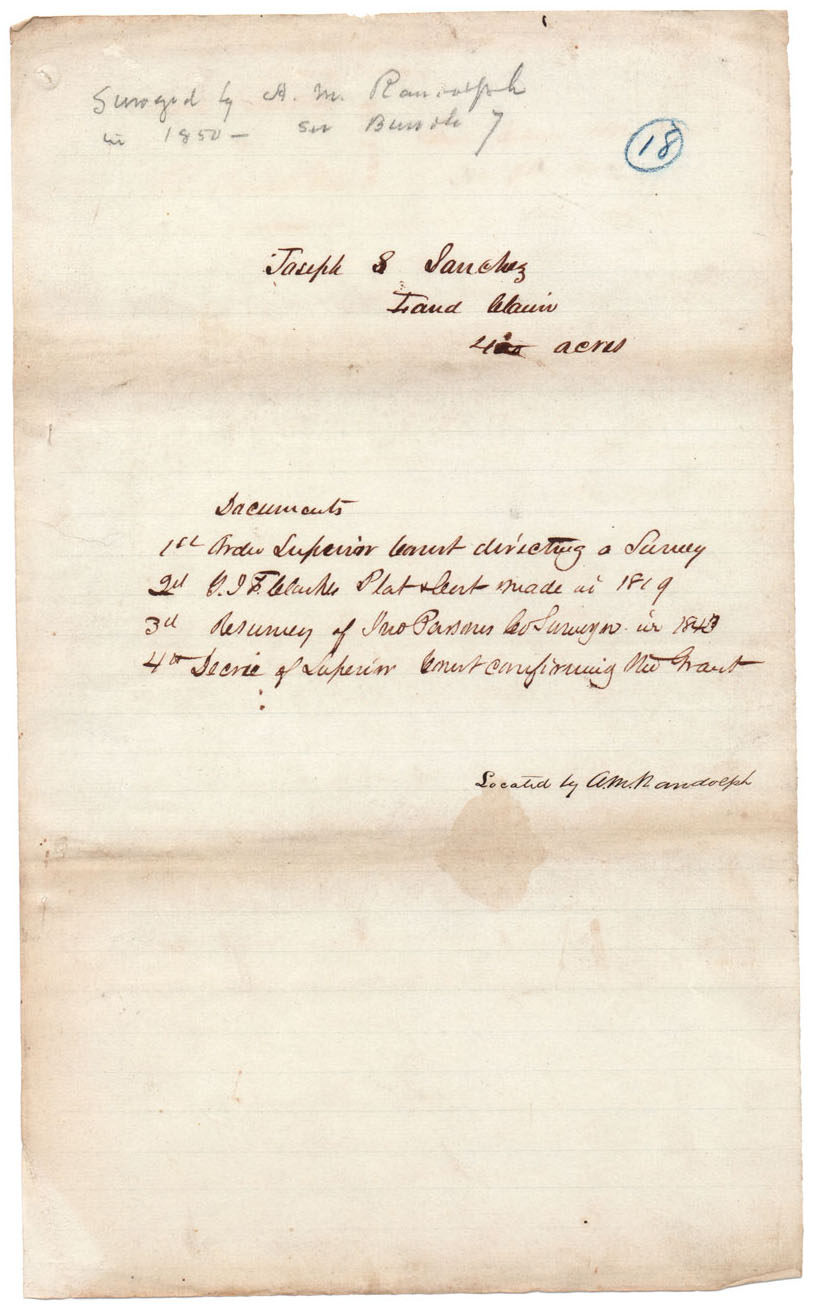 Surveyed by A. M. Randolph
in 1850 – See Bundle 7
18
Joseph S Sanchez
Land Claim
400 acres
Documents
1st Order Superior Court directing a Survey
2d G. I. F. Clarkes Plat & Cert made in 1819
3d Resurvey of Jno Parsons Co Surveyor in 1843
4th Decree of Superior Court confirming the Grant
Located by A.M. Randolph